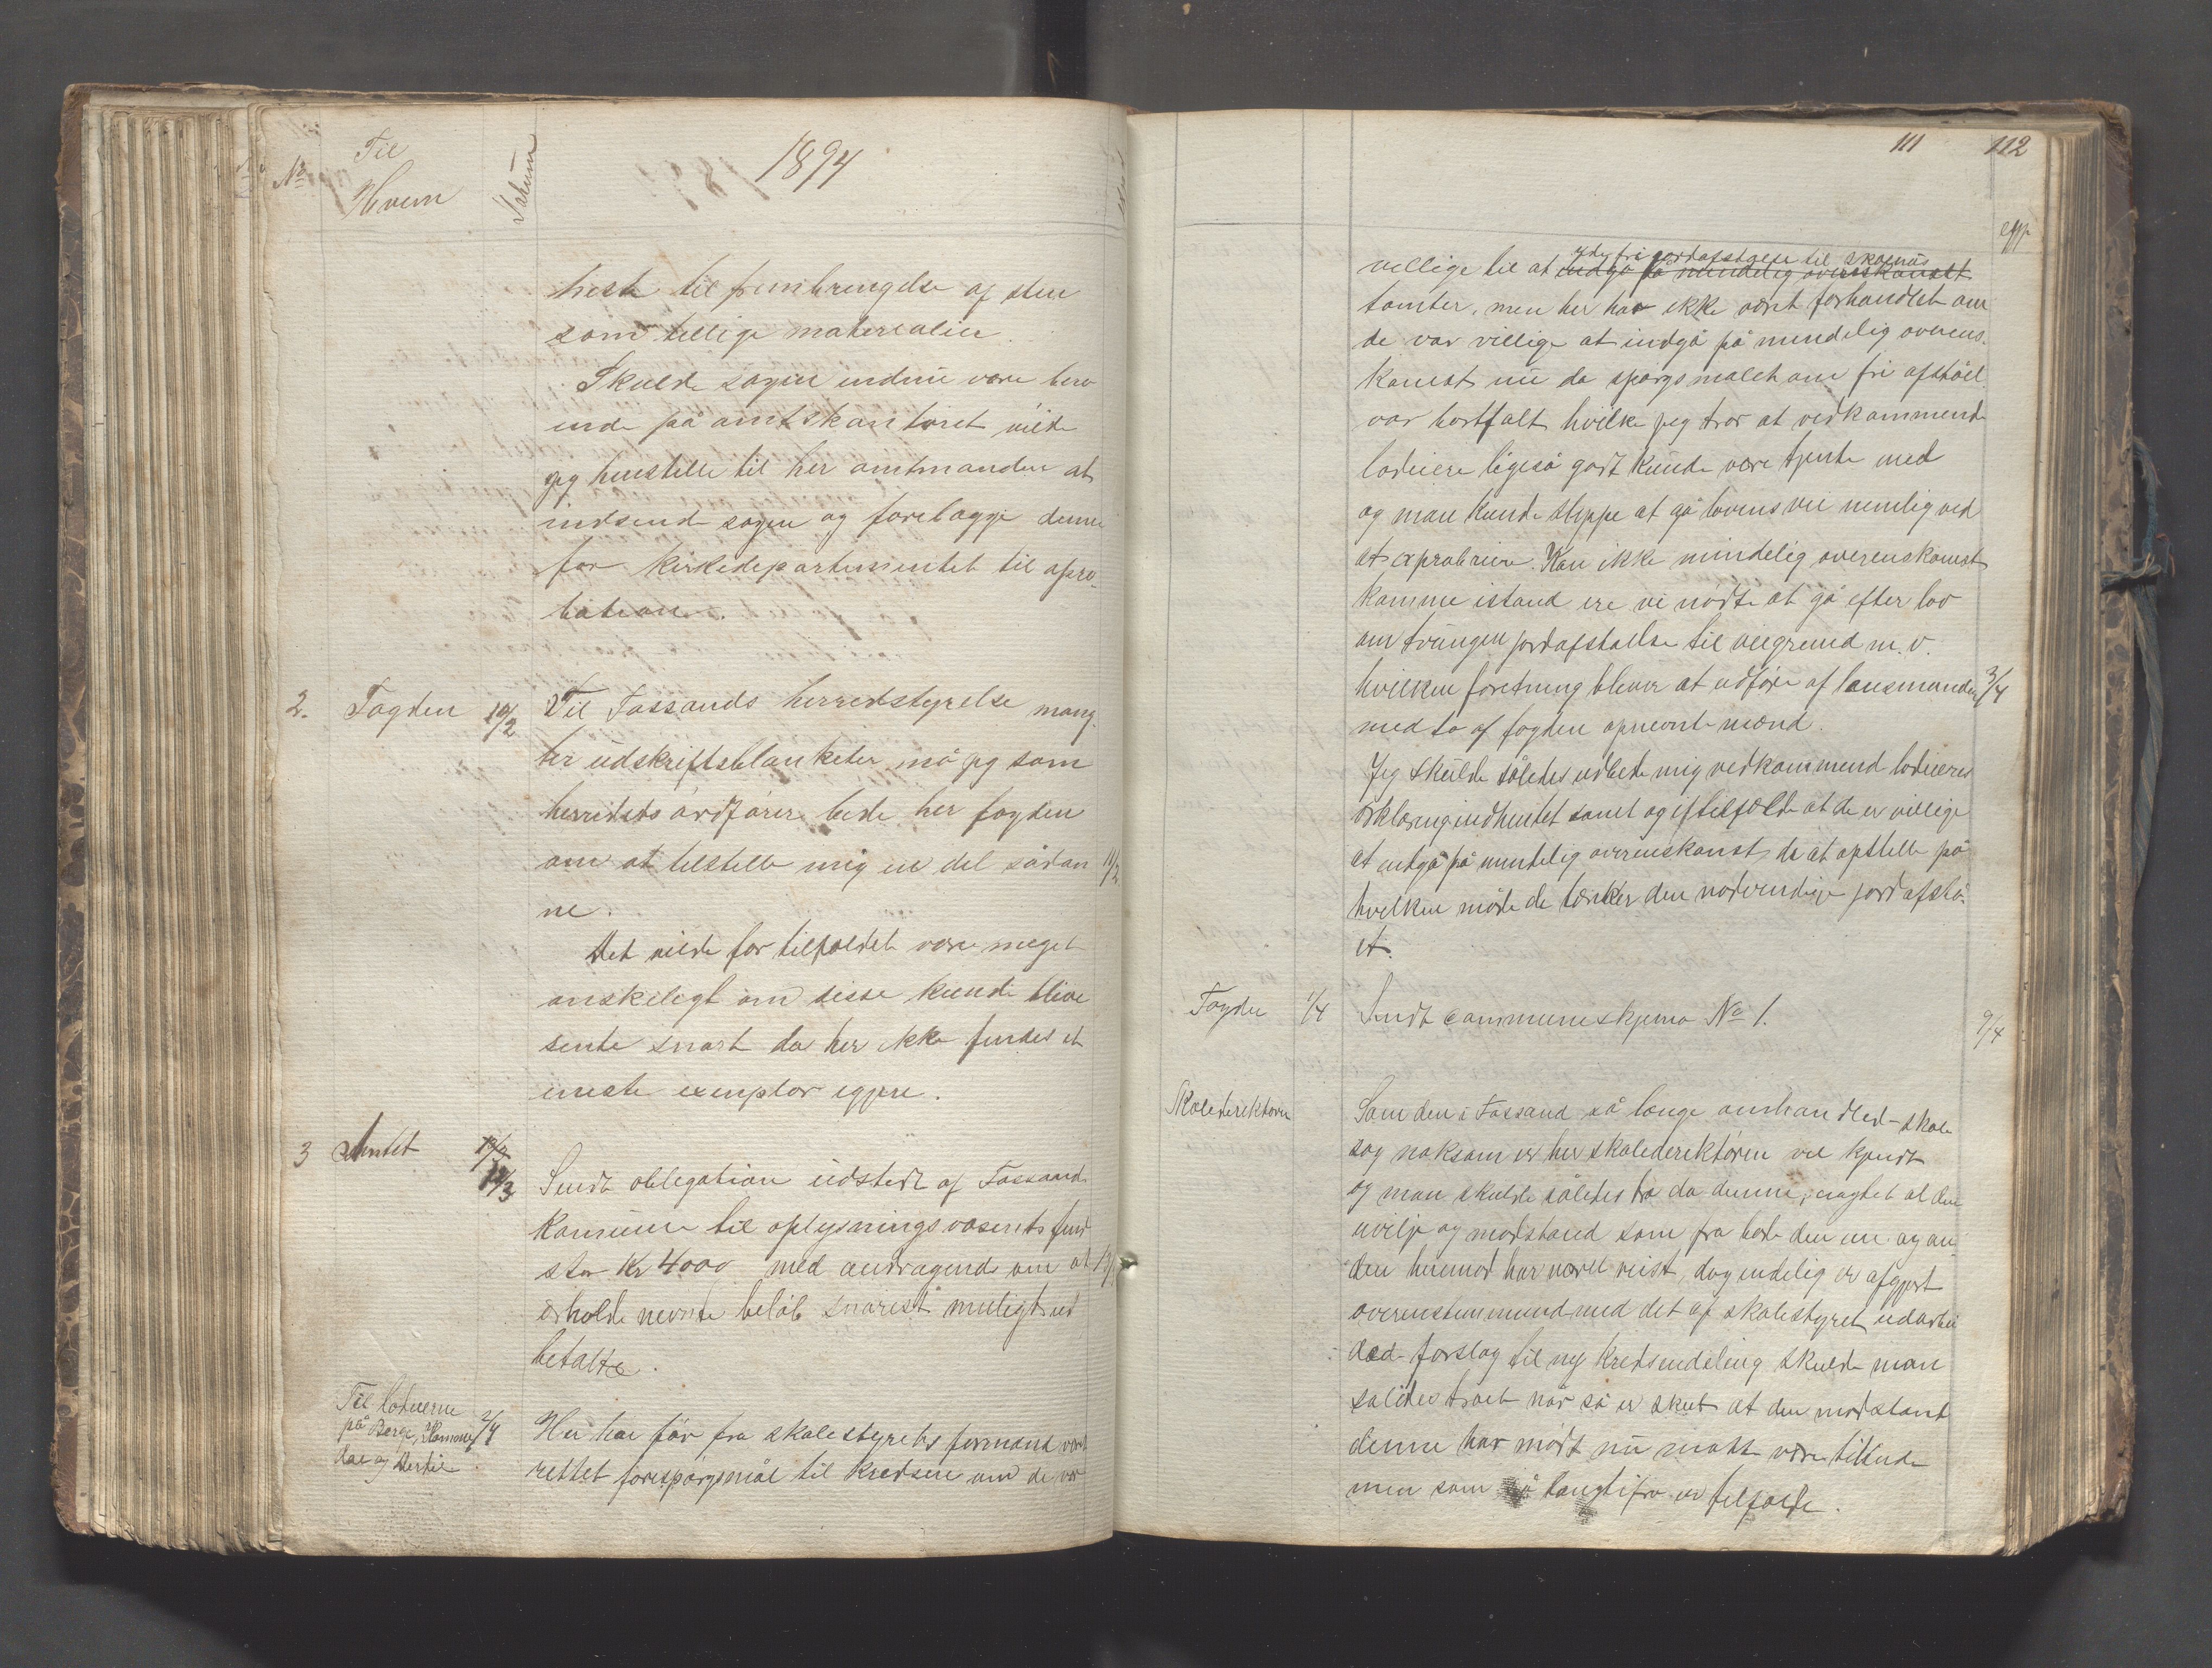 Til
No Hvem Datum 1894
heste til frembringelse af sten
som tillige materialier.
Skulde sagen endnu være bero
ende på amtskontoret vilde
jeg henstille til her amtmanden at
indsende sagen og forelægge denne
for kirkedepartementet til apro-
bation.
2. Fogden 10/2 Til Fossands herredstyrelse mang-
ler udskriftsblanketer må jeg som
herredets ordfører bede her fogden
om at tilstille mig en del sådan 11/2
ne.
Det vilde for tilfældet være meget
ønskeligt om disse kunde blive
sente snart da her ikke findes et
eneste exemplar igjen.
3 Amtet
12/3 Sendt obligation udstedt af Fossand
kommune til oplysningsvæsenets fond
stor Kr 4000 med andragende om at
erholde nevnte beløb snarest muligt ud
betalte.
Til lodeierne
på Berge,
dal og 2/4 Her har før fra skolestyrets formand vært
rettet forespørgsmål til kredsene om de var
111 112
yde fri jordafståelse til skolehus
villige til at indgå på mindelig overenskomst
tomter, men her har ikke været forhandlet om
de var villige at indgå på mindelig overens-
komst nu da spørgsmålet om fri afståel
var bortfalt hvilke jeg tror at vedkommende
lodeiere ligeså godt kunde være tjente med
og man kunde slippe at gå lovens vei nemlig ved
at exprobriere. Kan ikke mindelig overenskomst
komme istand ere vi nødte at gå efter lov
om tvungen jordafståelse til veigrund m. v.
hvilken foretning bliver at udføre af lensmanden 3/4
med to af fogden opnevnte mænd.
Jeg skulde således udbede mig vedkommende lodeieres
erklæring indhentet samt og i tilfælde at de er villige
at indgå på mindelig overenskomst, da at opstille på
hvilken måde de tænker den nødvendige jord afstå-
et.
Fogden 1/4 Sendt communeskjema No 1. 9/4
Skoledirektøren Som den i Fossand så længe omhandled- skole
sag noksom er her skoledirektøren vel kjendt
og man skulde således tro da denne, uagtet al den
uvilje og modstand som fra både den ene og an-
den herimod har været vist, dog endelig er afgjort
overenstemmende med det af skolestyret udarbei
ded forslag til ny kredsindeling skulde man
således troet når så er skeet at den modstand
denne har mødt nu måtte være tilende
men som så langtifra er tilfælde.